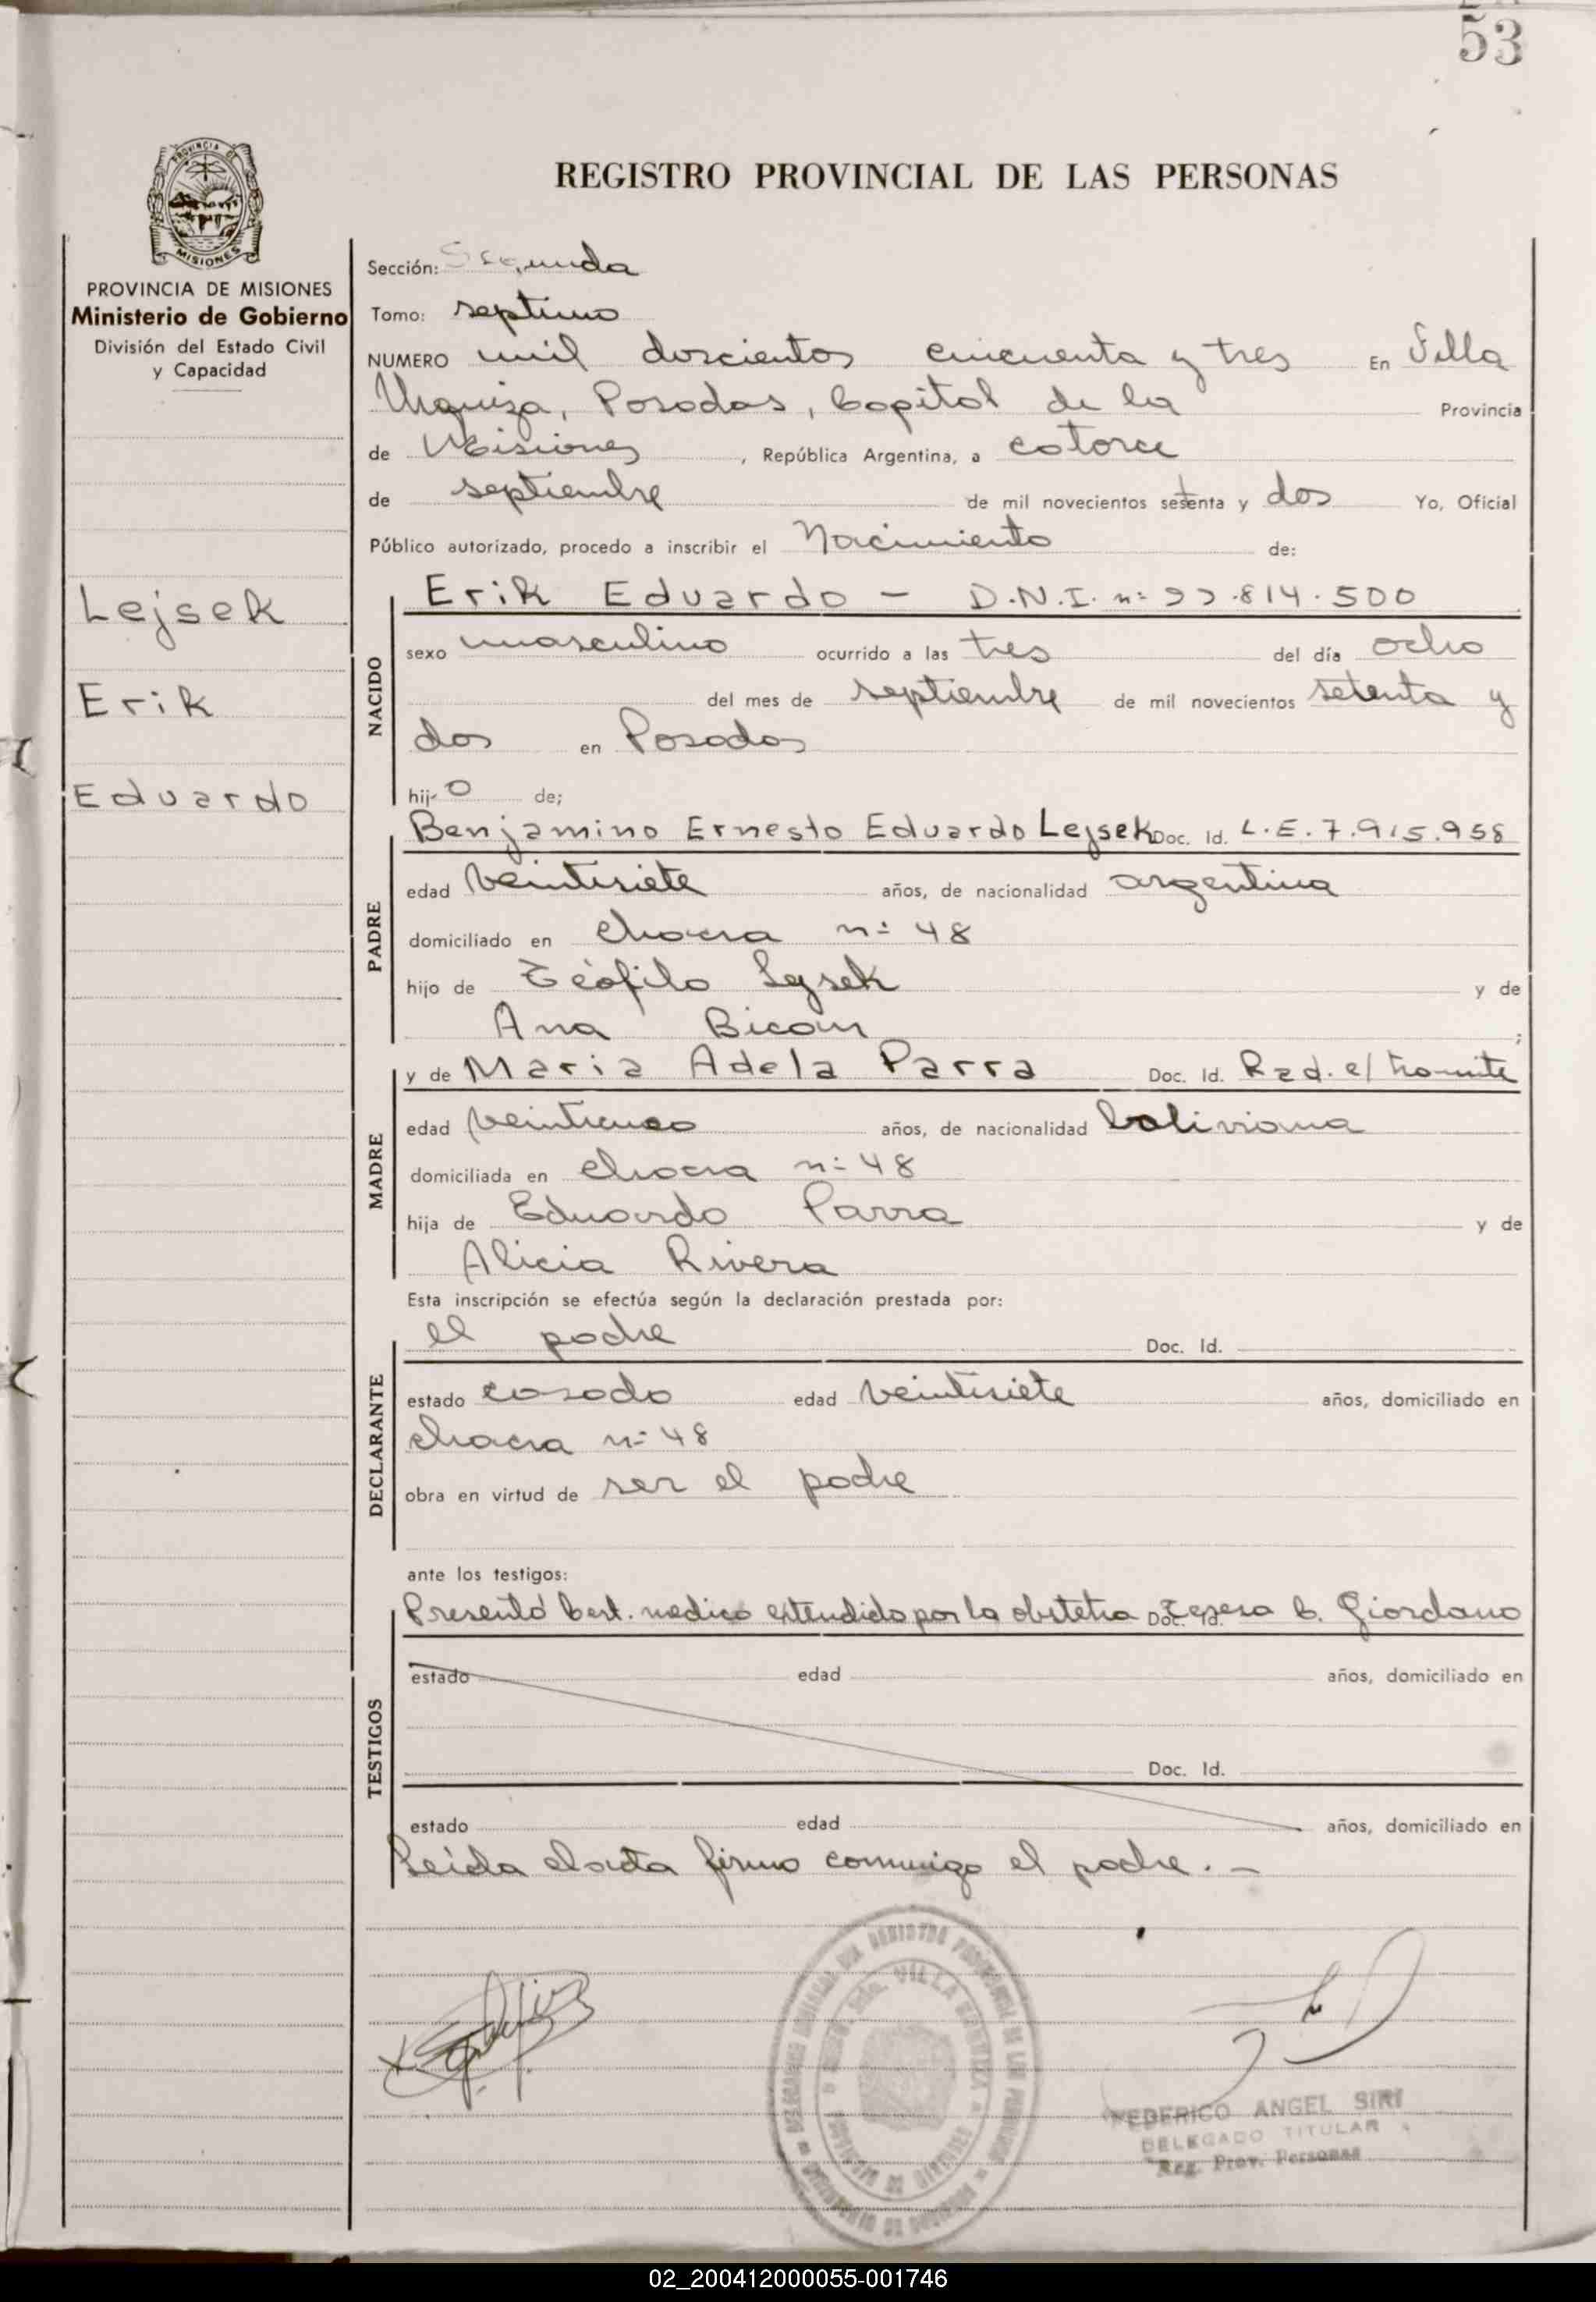 53
PROVINCIA DE
MISIONES
REGISTRO PROVINCIAL DE LAS PERSONAS
PROVINCIA DE MISIONES
Ministerio de Gobierno
División del Estado Civil
y Capacidad
Lejsek
Erik
Eduardo
Sección: Segunda
Tomo: septimo
NUMERO mil doscientos cincuenta y tres En Villa
Urquiza, Posadas, Capital de la Provincia
de Misiones, República Argentina, a catorce
de septiembre de mil novecientos setenta y dos Yo, Oficial
Público autorizado, procedo a inscribir el Nacimiento de:
NACIDO
Erik Eduardo - D.N.I. nº 22.814.500
sexo masculino ocurrido a las tres del día ocho
del mes de septiembre de mil novecientos setenta y
dos en Posadas
hijo de;
PADRE
Benjamino Ernesto Eduardo Lejsek Doc. Id. L.E. 7.915.958
edad veintisiete años, de nacionalidad argentina
domiciliado en chacra nº 48
hijo de Teófilo Lejsek y de
Ana ;
MADRE
y de Maria Adela Parra Doc. Id. Rad. e/ tramite
edad años, de nacionalidad boliviana
domiciliada en chacra nº 48
hija de Eduardo Parra y de
Alicia Rivera
Esta inscripción se efectúa según la declaración prestada por:
DECLARANTE
el padre Doc. Id.
estado casado edad veintisiete años, domiciliado en
chacra nº 48
obra en virtud de ser el padre
ante los testigos:
TESTIGOS
Presentó Cert. medico extendido por la obstetra Doc. Id. Teresa C. Giordano
estado edad años, domiciliado en
Doc. Id.
estado edad años, domiciliado en
Leida el acta firma conmigo el padre. -
FEDERICO ANGEL SIRI
DELEGADO TITULAR
Reg. Prov. Personas
02_200412000055-001746